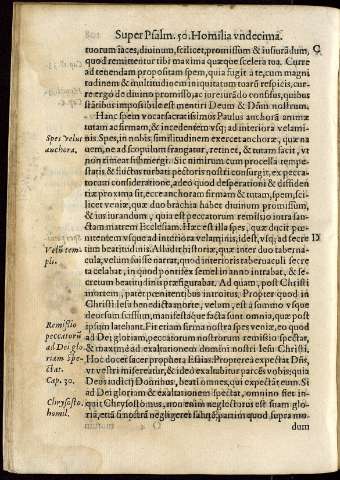 Super Psalm. 50. Homilia vndecima.
tuorum iaces, diuinum, scilicet, promissum & iusiurãdum, C
quod remittetur tibi maxima quæque scelera tua. Curre
ad tenendam propositam spem, quia fugit à te, cum magni
tudinem & multitudinem iniquitatum tuarũ respicis, cur-
re ergo diuino promisso, ac iureiurãdo confisus, quibus
stãribus impossibile est mentiri Deum & Dñm nostrum.
Hanc spem vocat sacratissimus Paulus anchorã animæ
Spes velut
anchora.
tutam ac firmam, & incedentem vsq; ad interiora velami-
nis. Spes, in nobis similitudinem exercet anchoræ, quæ na
uem, ne ad scopulum frangatur, retinet, & tutam facit, vt
non timeat submergi. Sic nimirum cum procella tempe-
statis & fluctus turbati pectoris nostri consurgit, ex pecca-
torum consideratione, adeò quod desperationi & diffiden
tiæ proxima sit, ecce anchoram firmam & tutam, spem, sci-
licet veniæ, quæ duo brachia habet diuinum promissum,
& iusiurandum, quia est peccatorum remissio intra san-
ctam matrem Ecclesiam. Hæc est illa spes, quæ ducit pœ-
nitentem vsque ad interiora velaminis, idest, vsq; ad secre D
Velũ tem-
pli.
tum beatitudinis. Alludit historiæ, quæ inter duo taberna-
cula, velum fuisse narrat, quod interioris tabernaculi secre
ta celabat, in quod pontifex semel in anno intrabat, & se-
cretum beatitudinis præfigurabat. Ad quam, post Christi
mortem, patet pœnitentibus introitus. Propter quod in
Christi Iesu benedicta morte, velum, est à summo vsque
deorsum scissum, manifestáque facta sunt omnia, quæ post
ipsum latebant. Fit etiam firma nostra spes veniæ, eo quod
Remissio
peccatorũ
ad Dei glo
riam spe-
ctat.
Cap. 30.
ad Dei gloriam, peccatorum nostrorum remissio spectat,
& maximè ad exaltationem domini nostri Iesu Christi.
Hoc docet sacer propheta Esaias. Propterea expectat Dñs,
vt vestri misereatur, & ideo exaltabitur parcẽs vobis: quia
Deus iudicij Dominus, beati omnes, qui expectãt eum. Si
ad Dei gloriam & exaltationem spectat, omnino fiet in-
Chrysosto.
homil.
quit Chrysostomus, non enim neglecturus est suam glo-
riã, etsi nostrã negligeret salutẽ: partim quod supra mo-
dum